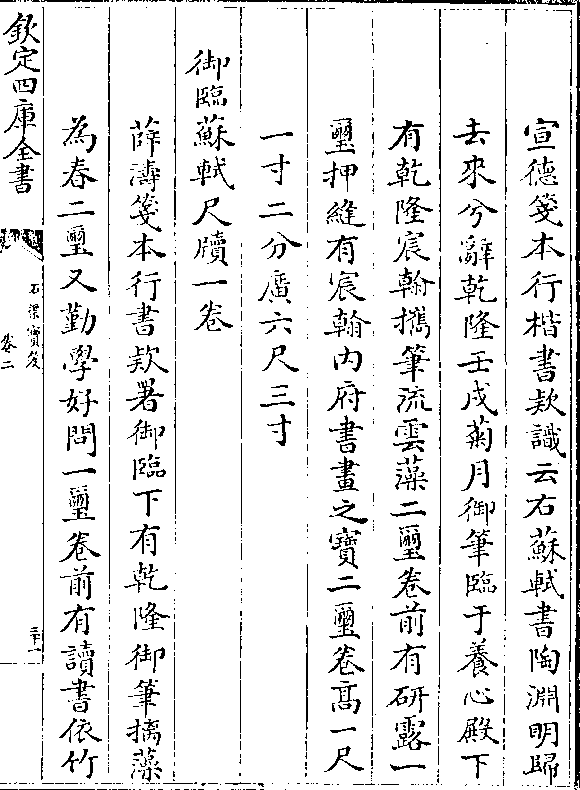 宣德箋本行楷書欵識云右蘇軾書陶淵明歸
去來兮辭乾隆壬戌菊月御筆臨于養心殿下
有乾隆宸翰攜筆流雲藻二璽卷前有研露一
璽押縫有宸翰内府書畫之寶二璽卷髙一尺
一寸二分廣六尺三寸
御臨蘇軾尺牘一卷
薛濤箋本行書欵署御臨下有乾隆御筆摛藻
為春二璽又勤學好問一璽卷前有讀書依竹
欽定四庫全書
石渠寳笈
卷二
三十一